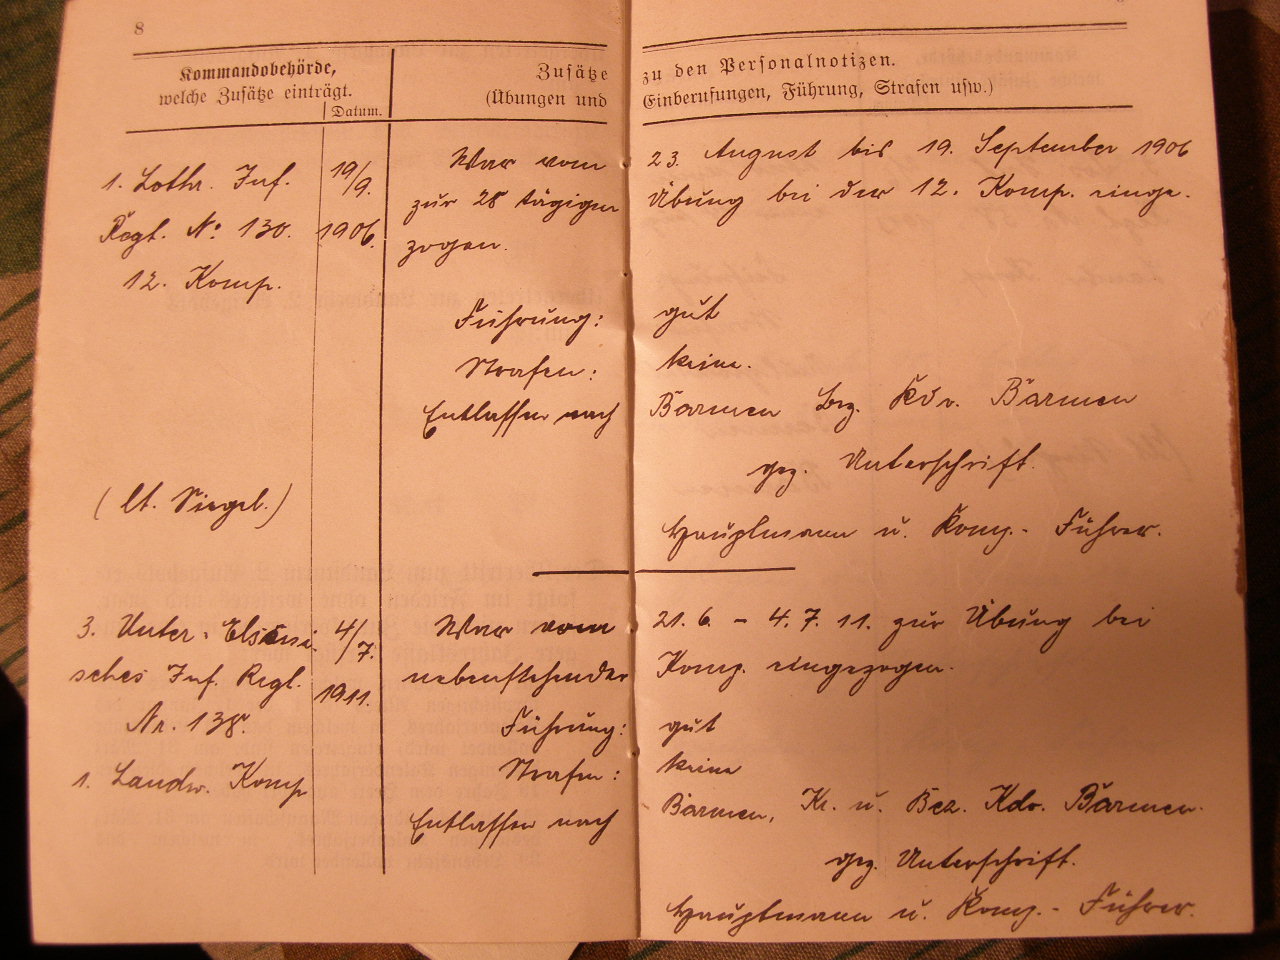 8
Kommandobehörde,
welche Zusätze einträgt.
Datum.
Zusätze zu den Personalnotizen.
(Übungen und Einberufungen, Führung, Strafen usw.)
1. Lothr. Inf. 19/9. War vom 23. August bis 19. September 1906
Regt. No 130. 1906. zur 28 tägigen Übung bei der 12. Komp. einge-
12. Komp. zogen.
Führung: gut
Strafen: keine.
Entlassen nach Barmen Bez. Kdo. Barmen
gez. Unterschrift.
(lt. Siegel.)
Hauptmann u. Komp.- Führer.
3. Unter-Elsässi- 4/7. War vom 21. 6. – 4. 7. 11. zur Übung bei
sches Inf. Regt. 1911. nebenstehender Komp. eingezogen.
Nr. 138. Führung: gut
1. Landw. Komp Strafen: keine
Entlassen nach Barmen, Kr. u. Bez. Kdo. Barmen.
gez. Unterschrift.
Hauptmann u. Komp.- Führer.